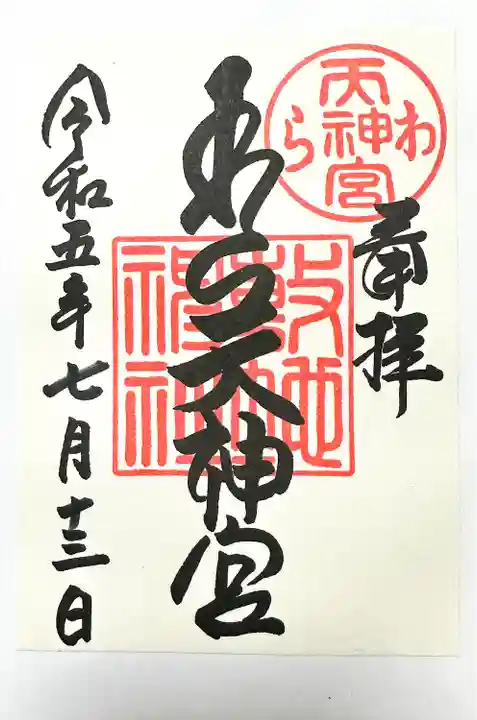 奉拝
わら天神宮
わら天神宮
敷地神社
令和五年七月十三日